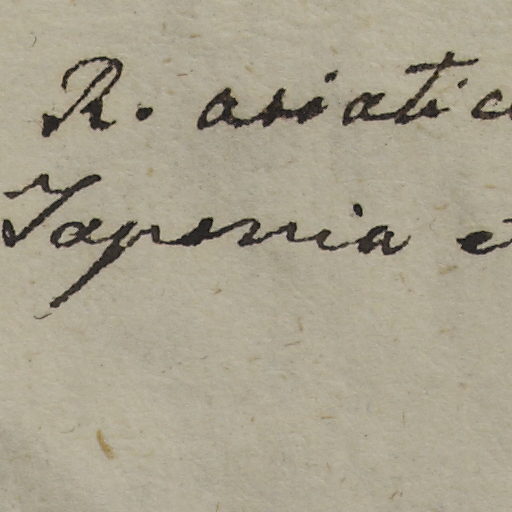 R. asiatic
Japonia e